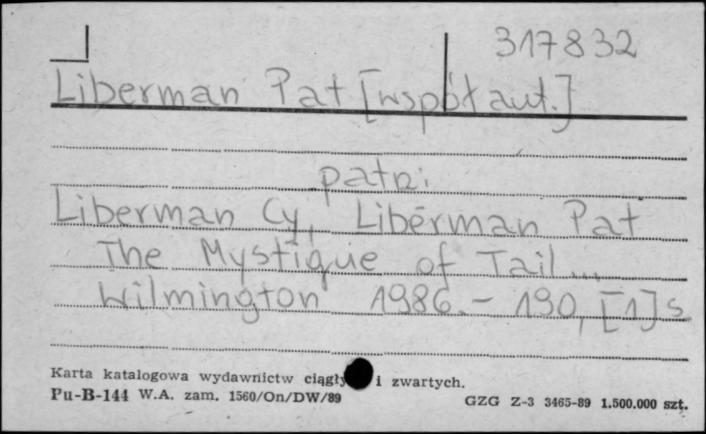 317832
Liberman Pat [współaut.]
patrz:
Liberman Cy, Liberman Pat
The Mystique of Tail...
Wilmington 1986. - 190, [1] s
Karta katalogowa wydawnictw ciągły i zwartych.
Pu-B-144 W.A. zam. 1560/On/DW/89
GZG Z-3 3465-89 1.500.000 szt.